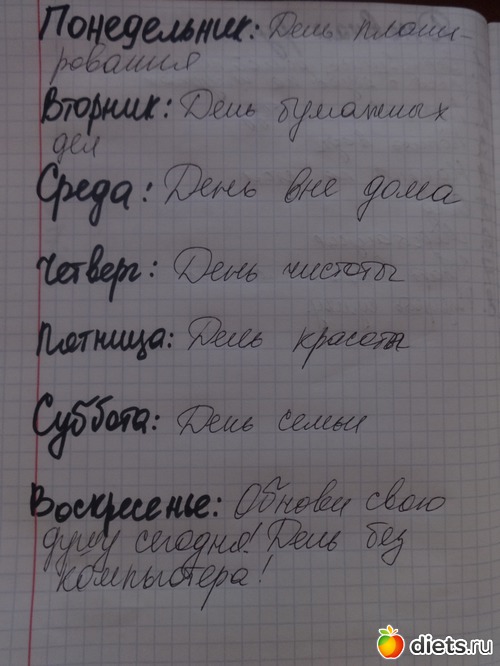 Понедельник: День плани-
рования
Вторник: День бумажных
дел
Среда: День вне дома
Четверг: День чистоты
Пятница: День красоты
Суббота: День семьи
Воскресенье: Обнови свою
душу сегодня! День без
компьютера!
diets.ru